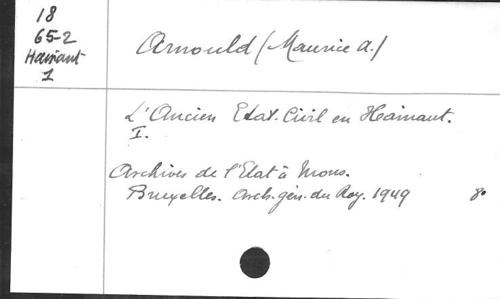 18
65-2
Hainaut
1
Arnould (Maurice A.)
L'Ancien Etat-Civil en Hainaut.
I.
Archives de l'Etat à Mons.
Bruxelles. Arch. gén. du Roy. 1949 8°